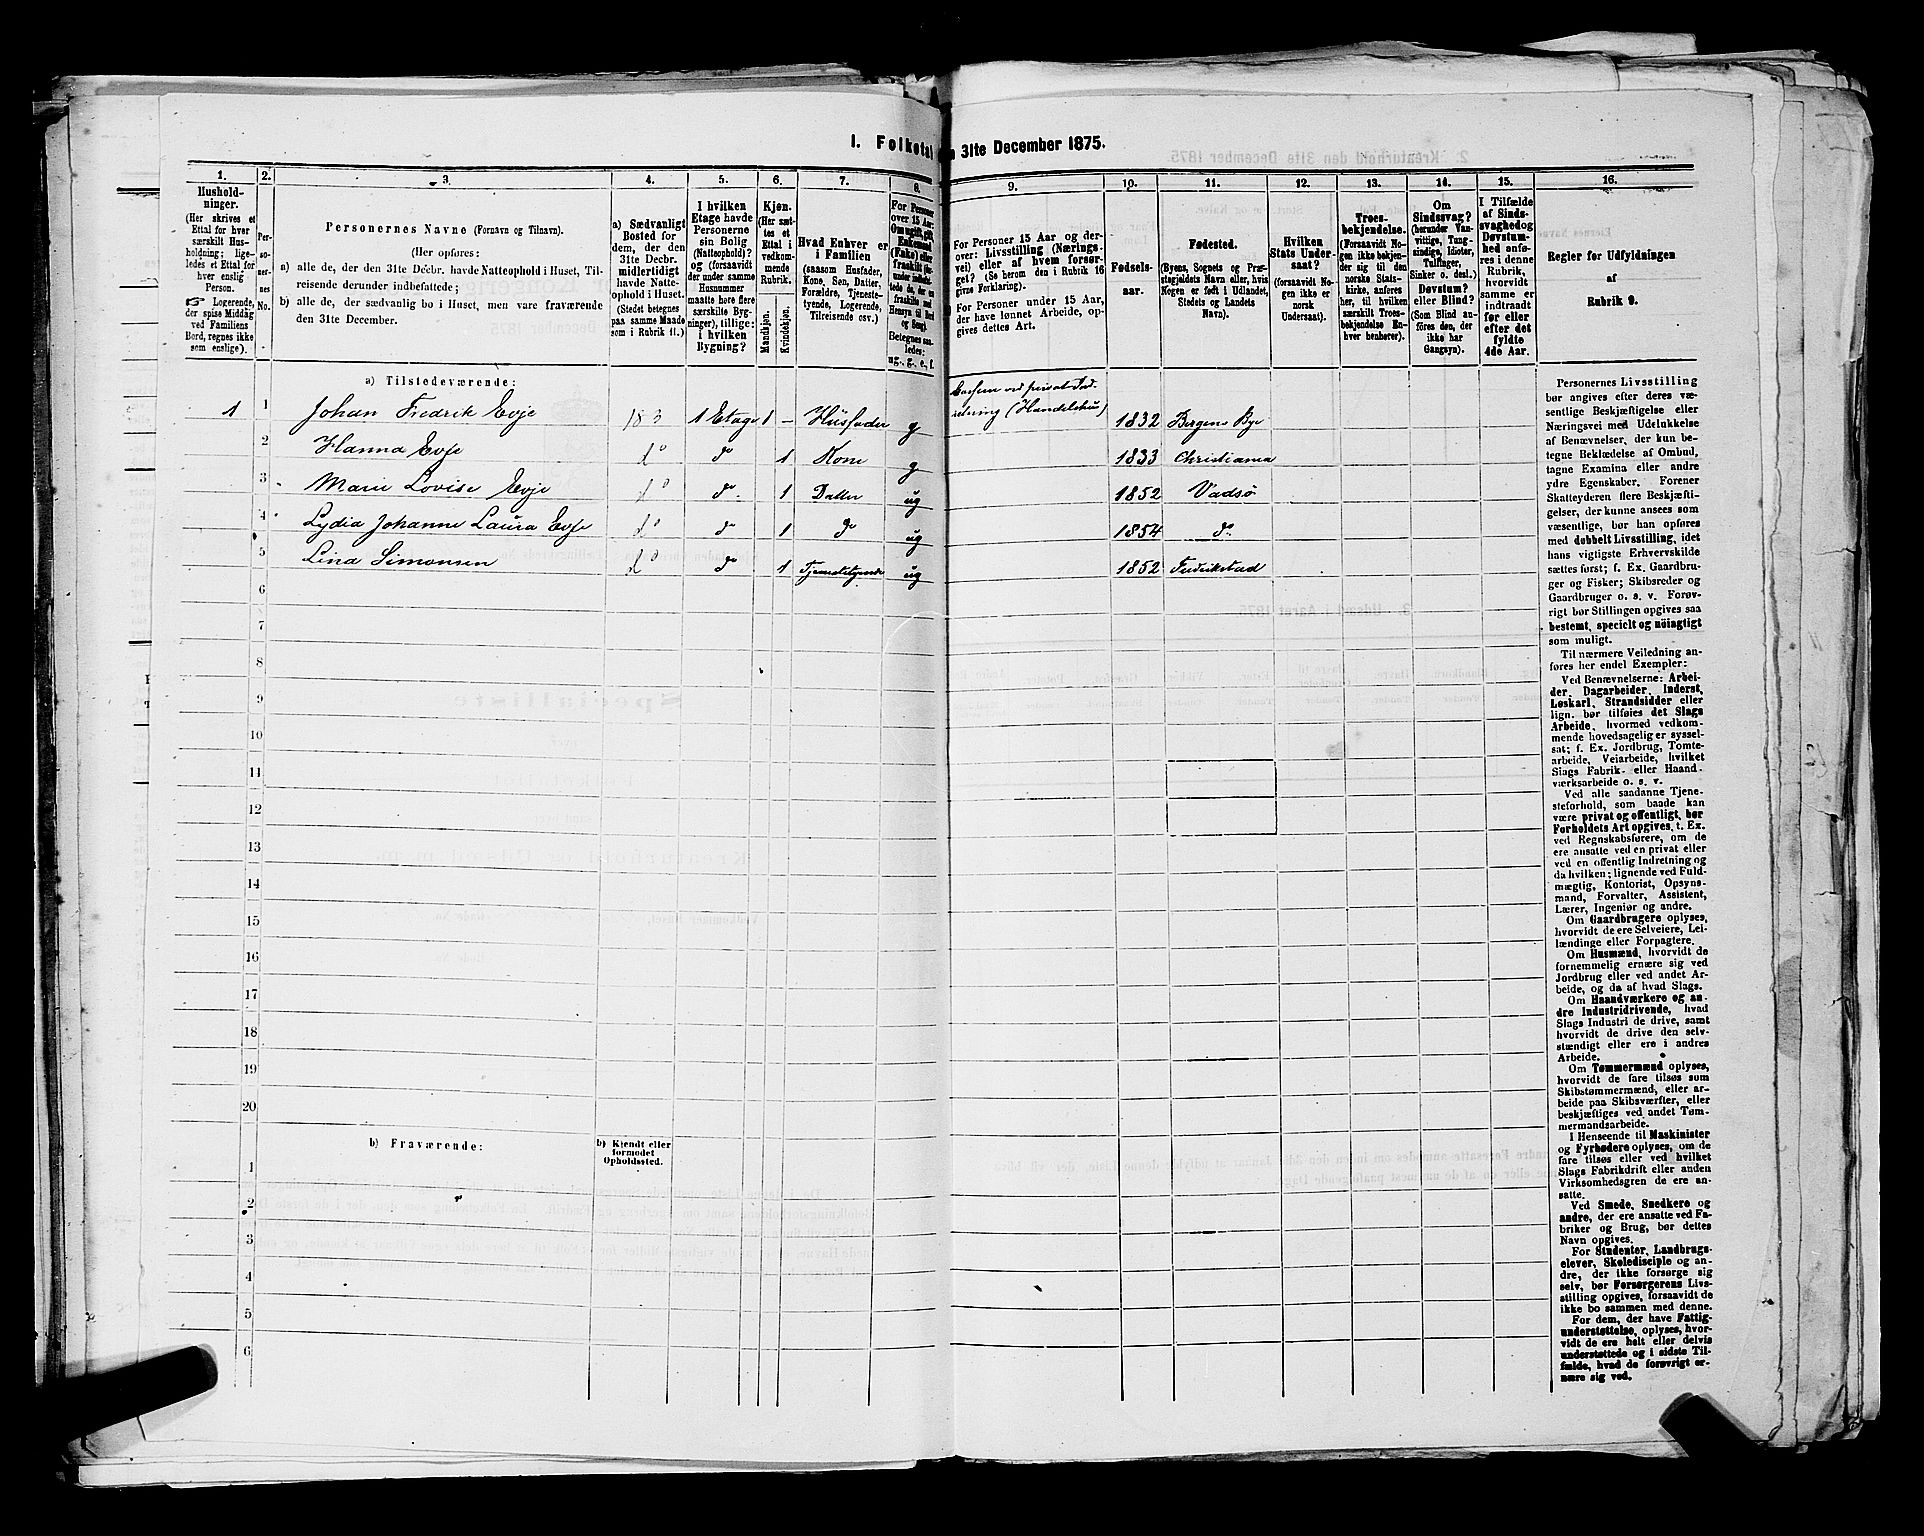 1. Folketal
31te December 1875.
1.
2.
3.
4.
5.
6.
7.
8.
9.
10.
11.
12.
13.
14.
15.
16.
Hushold-
ninger.
(Her skrives et
Ettal for hver
særskilt Hus-
holdning; lige-
ledes et Ettal for
hver enslig
Person.
☞ Logerende,
der spise Middag
ved Familiens
Bord, regnes ikke
som enslige).
Per-
so-
ner-
nes
No.
Personernes Navne (Fornavn og Tilnavn).
(Her opføres:
a) alle de, der den 31te Decbr. havde Natteophold i Huset, Til-
reisende derunder indbefattede;
b) alle de, der sædvanlig bo i Huset, men vare fraværende
den 31te December.
a) Sædvanligt
Bosted for
dem, der den
31te Decbr.
midlertidigt
havde Natte-
ophold i Huset.
(Stedet betegnes
paa samme Maade
som i Rubrik 11.)
I hvilken
Etage havde
Personerne
sin Bolig
(Natteophold)?
og (forsaavidt
der under samme
Husnummer
maatte høre flere
særskilte Byg-
ninger), tillige:
i hvilken
Bygning?
Kjøn.
(Her sæt-
tes et
Ettal i
vedkom-
mende
Rubrik.
Mandkjøn.
Kvindekjøn.
Hvad Enhver er
i Familien
(saasom Husfader,
Kone, Søn, Datter,
Forældre, Tjeneste-
tyende, Logerende,
Tilreisende osv.)
For Personer
over 15 Aar:
Om ugift, gift,
Enkemand
(Enke) eller
fraskilt
Betegnes saa-
ledes:
ug., g., e., f.
For Personer 15 Aar og der-
over: Livsstilling (Nærings-
vei) eller af hvem forsør-
get? (Se herom den i Rubrik 16
givne Forklaring).
For Personer under 15 Aar,
der have lønnet Arbeide, op-
gives dettes Art.
Fødsels-
aar.
Fødested.
(Byens, Sognets og Præ-
stegjeldets Navn eller, hvis
Nogen er født i Udlandet,
Stedets og Landets
Navn).
Hvilken
Stats Under-
saat?
(forsaavidt No-
gen ikke er
norsk
Undersaat).
Troes-
bekjendelse.
(Forsaavidt No-
gen ikke bekjen-
der sig til den
norske Stats-
kirke, anføres
her, til hvilken
særskilt Troes-
bekjendelse En-
hver henhører).
Om
Sindssvag?
(herunder Van-
vittige, Tung-
sindige, Idioter,
Tullinger,
Sinker o. desl.)
Døvstum?
eller Blind?
(Som Blind an-
føres den, der
ikke har
Gangsyn).
I Tilfælde
af Sinds-
svaghed og
Døvstum-
hed anfø-
res i denne
Rubrik,
hvorvidt
samme er
indtraadt
før eller
efter det
fyldte
4de Aar.
Regler før Udfyldningen
af
Rubrik 9.
a) Tilstedeværende:
1 1 Johan Fredrik Evje 183 1 Etage 1 – Husfader g privat Ind-
retning (Handelshus) 1832 Bergens Bye
2 Hanna Evje do do 1 Kone g 1833 Christiania
3 Marie Lovise Evje do do 1 Datter ug 1852 Vadsø
4 Lydia Johanne Laura Evje do do 1 do ug 1854 do
5 Lina Simonsen do do 1 Tjenestetyende ug 1852 Fredrikstad
6
7
8
9
10
11
12
13
14
15
16
17
18
19
20
b) Fraværende:
b) Kjendt eller
formodet
Opholdssted.
1
2
3
4
5
6
Personernes Livsstilling
bør angives efter deres væ-
sentlige Beskjæftigelse eller
Næringsvei med Udelukkelse
af Benævnelser, der kun be-
tegne Beklædelse af Ombud,
tagne Examina eller andre
ydre Egenskaber. Forener
Skatteyderen flere Beskjæfti-
gelser, der kunne ansees som
væsentlige, bør han opføres
med dobbelt Livsstilling, idet
hans vigtigste Erhvervskilde
sættes først; f. Ex. Gaardbru-
ger og Fisker; Skibsreder og
Gaardbruger o. s. v. Forøv-
rigt bør Stillingen opgives saa
bestemt, specielt og nöiagtigt
som muligt.
Til nærmere Veiledning an-
føres her endel Exempler:
Ved Benævnelserne: Arbei-
der, Dagarbeider, Inderst,
Løskarl, Strandsidder eller
lign. bør tilføies det Slags
Arbeide, hvormed vedkom-
mende hovedsagelig er syssel-
sat; f. Ex. Jordbrug, Tomte-
arbeide, Veiarbeide, hvilket
Slags Fabrik- eller Haand-
værksarbeide o. s. v.
Ved alle saadanne Tjene-
steforhold, som baade kan
være privat og offentligt, bør
Forholdets Art opgives, t. Ex.
ved Regnskabsførere, om de
ere ansatte ved en privat eller
ved en offentlig Indretning og
da hvilken; lignende ved Fuld-
mægtig, Kontorist, Opsyns-
mand, Forvalter, Assistent,
Lærer, Ingeniør og andre.
Om Gaardbrugere oplyses,
hvorvidt de ere Selveiere, Lei-
lændinge eller Forpagtere.
Om Husmænd, hvorvidt de
fornemmelig ernære sig ved
Jordbrug eller ved andet Ar-
beide, og da af hvad Slags.
Om Haandværkere og an-
dre Industridrivende, hvad
Slags Industri de drive, samt
hvorvidt de drive den selv-
stændigt eller ere i andres
Arbeide.
Om Tømmermænd oplyses,
hvorvidt de fare tilsøs som
Skibstømmermænd, eller ar-
beide paa Skibsværfter, eller
beskjæftiges ved andet Tøm-
mermandsarbeide.
I Henseende til Maskinister
og Fyrbødere oplyses, om de
fare tilsøs eller ved hvilket
Slags Fabrikdrift eller anden
Virksomhedsgren de ere an-
satte.
Ved Smede, Snedkere og
andre, der ere ansatte ved Fa-
briker og Brug, bør dettes
Navn opgives.
For Studenter, Landbrugs-
elever, Skoledisciple og an-
dre, der ikke forsørge sig
selv, bør Forsørgerens Livs-
stilling opgives, forsaavidt de
ikke bo sammen med denne.
For dem, der have Fattig-
understøttelse, oplyses, hvor-
vidt de ere helt eller delvis
understøttede og i sidste Til-
fælde, hvad de forøvrigt er-
nære sig ved.